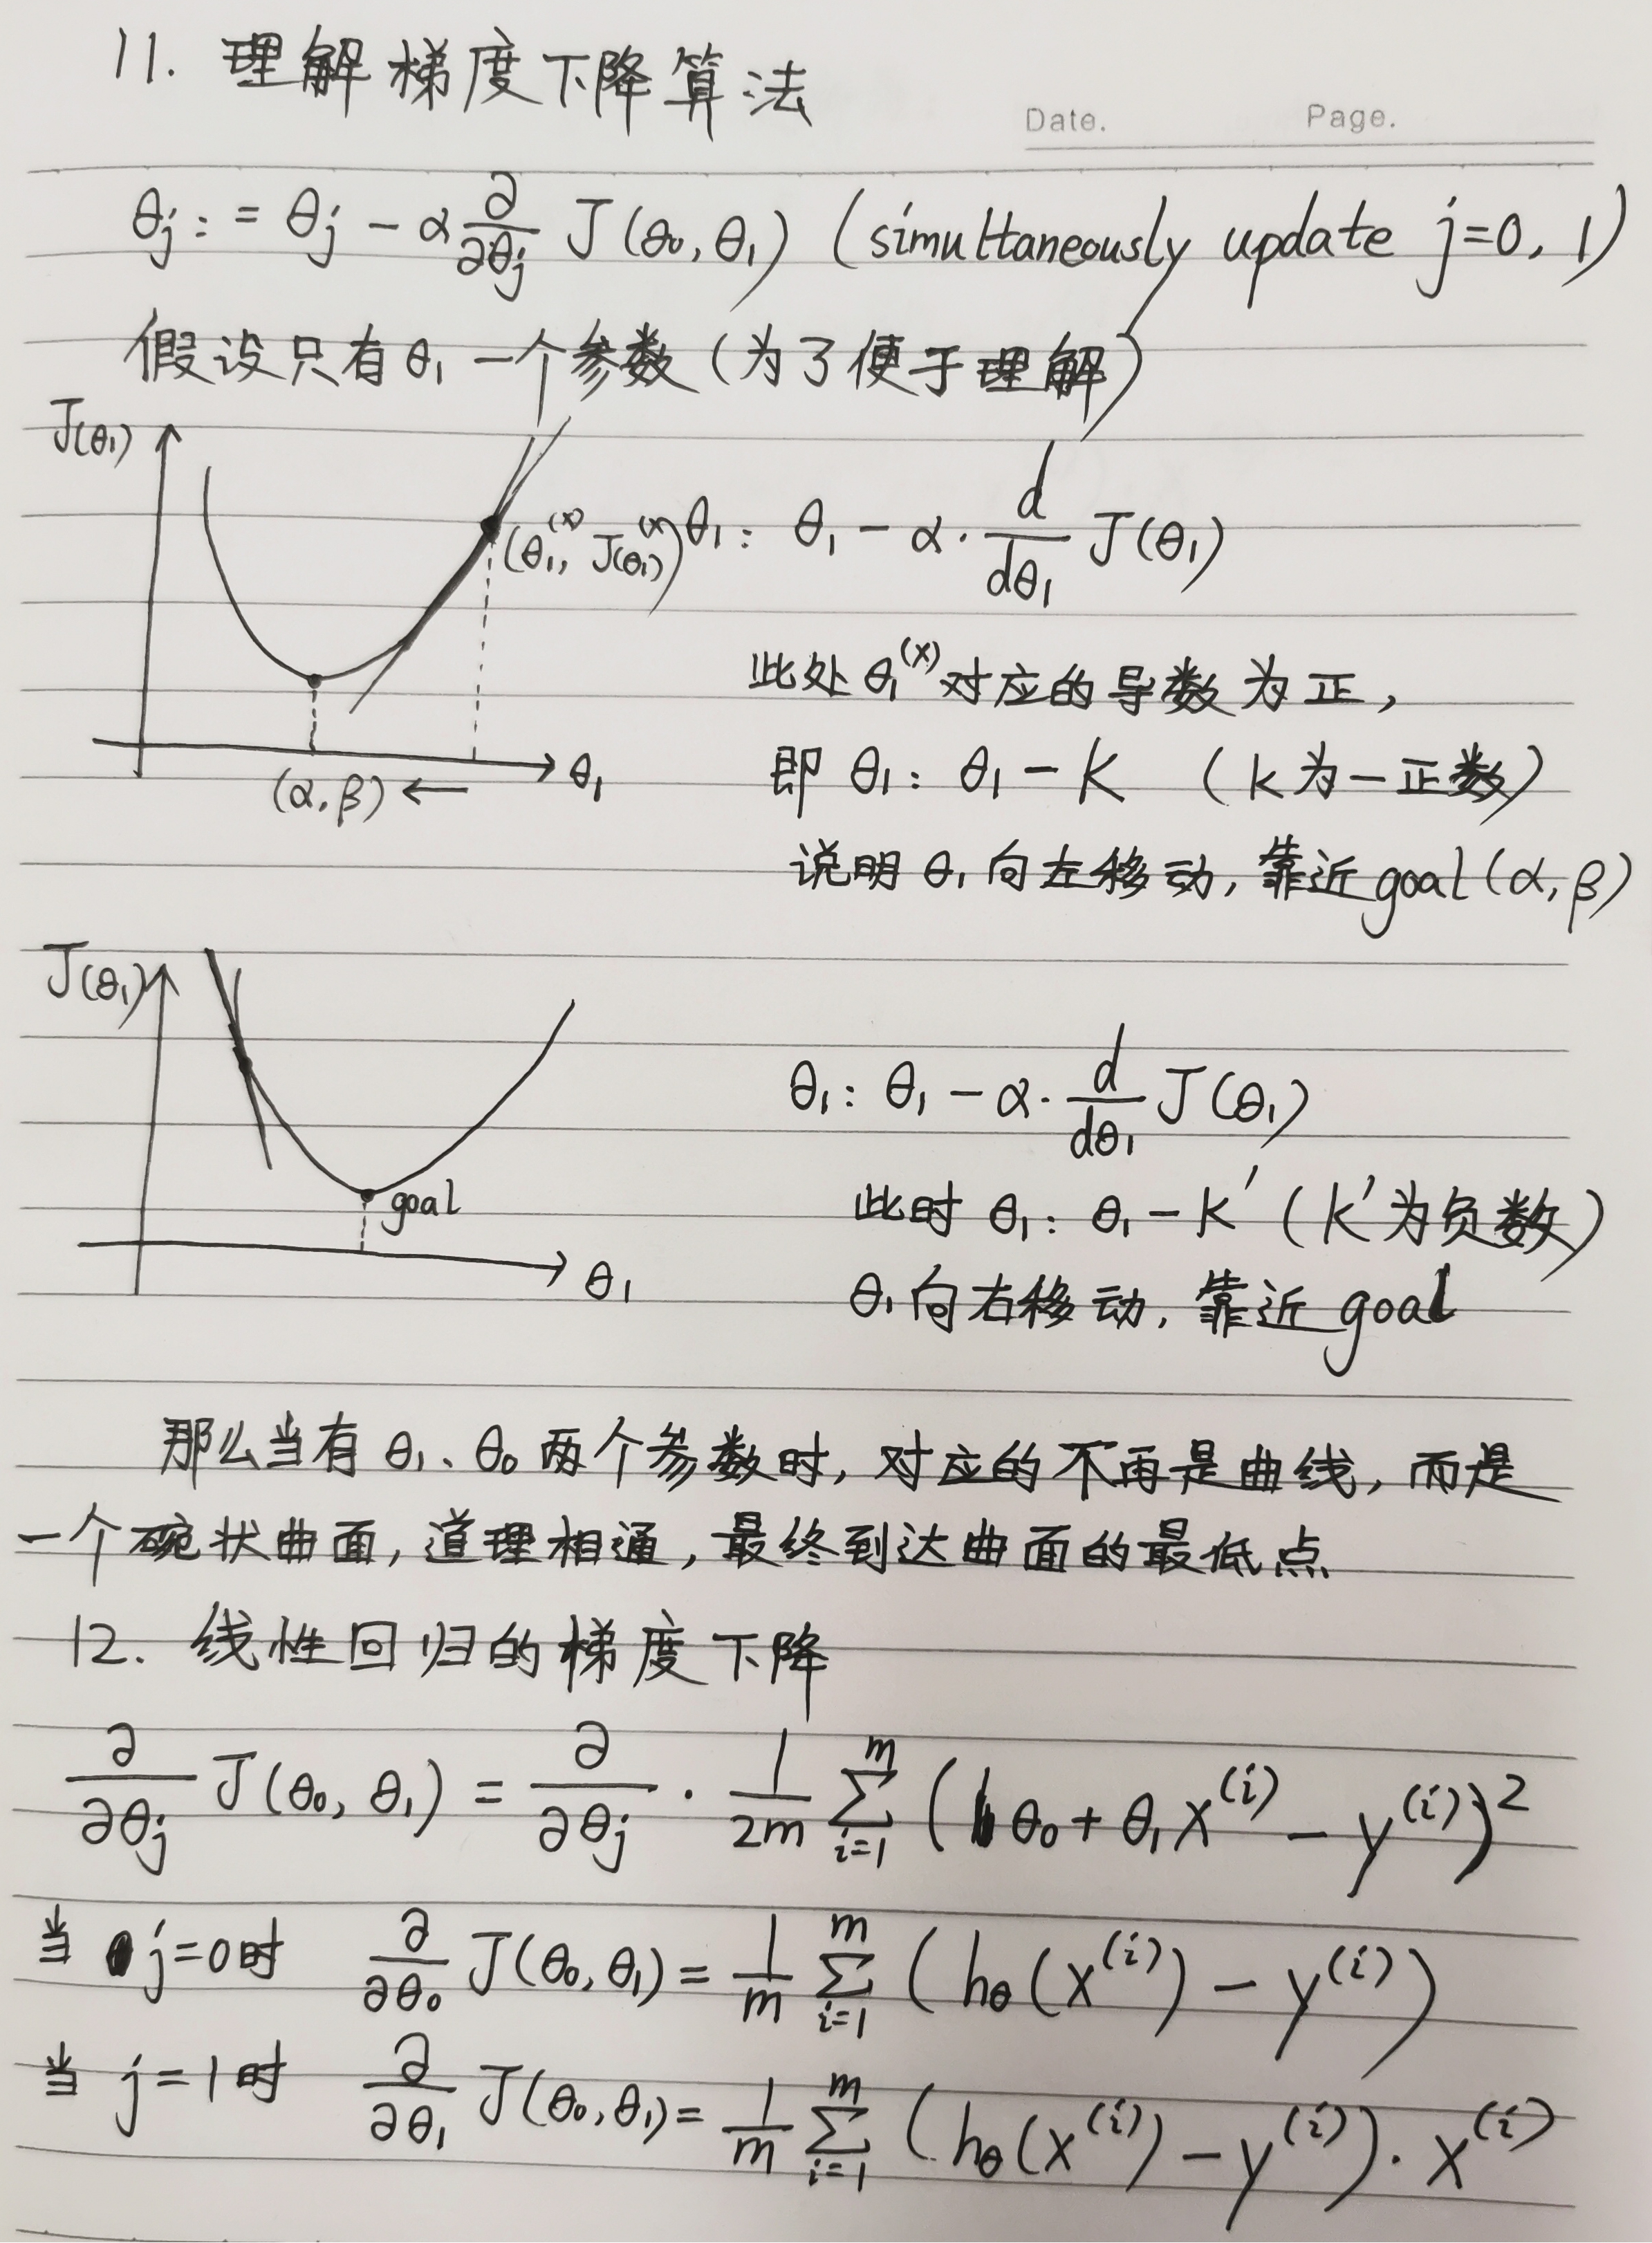 11. 理解梯度下降算法
Date. Page.
θj := θj - α ∂/∂θj J(θ0, θ1) (simultaneously update j=0, 1)
假设只有θ1一个参数(为了便于理解)
J(θ1)
(θ1^(x), J(θ1)^(x)) θ1: θ1 - α · d/dθ1 J(θ1)
此处θ1^(x)对应的导数为正,
θ1
即 θ1: θ1 - K (K为一正数)
(α, β) ←
说明θ1向左移动, 靠近goal(α, β)
J(θ1)
θ1: θ1 - α · d/dθ1 J(θ1)
goal
此时 θ1: θ1 - K' (K'为负数)
θ1
θ1向右移动, 靠近goal
那么当有θ1、θ0两个参数时, 对应的不再是曲线, 而是
一个碗状曲面, 道理相通, 最终到达曲面的最低点
12. 线性回归的梯度下降
∂/∂θj J(θ0, θ1) = ∂/∂θj · 1/2m ∑_{i=1}^{m} (θ0 + θ1x^(i) - y^(i))^2
当 j=0时 ∂/∂θ0 J(θ0, θ1) = 1/m ∑_{i=1}^{m} (hθ(x^(i)) - y^(i))
当 j=1时 ∂/∂θ1 J(θ0, θ1) = 1/m ∑_{i=1}^{m} (hθ(x^(i)) - y^(i)) · x^(i)